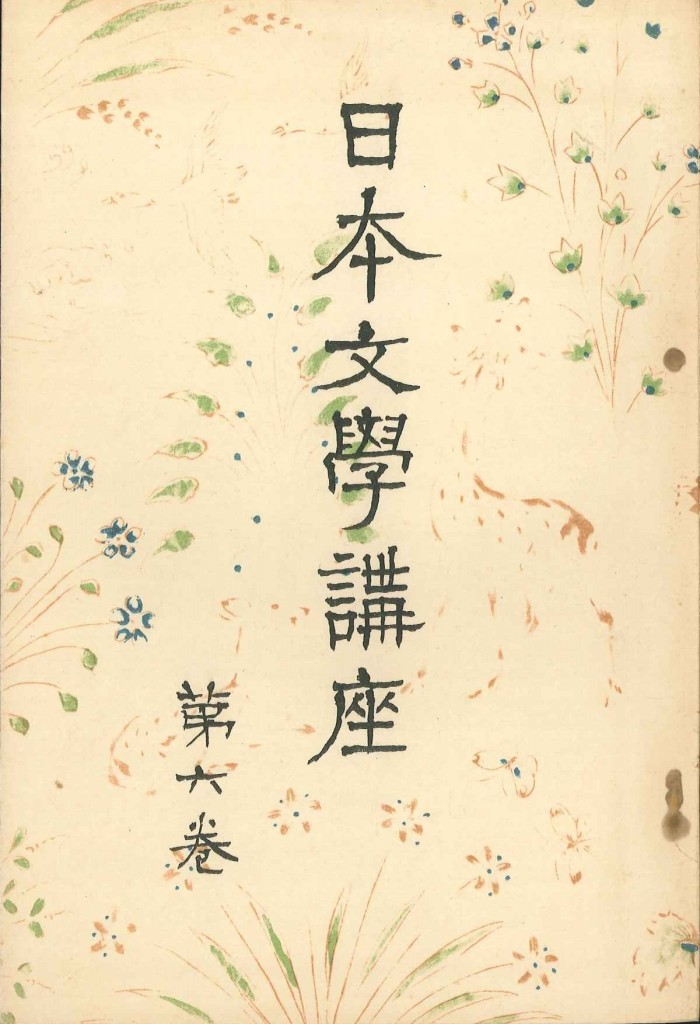 日本文學講座
第六卷